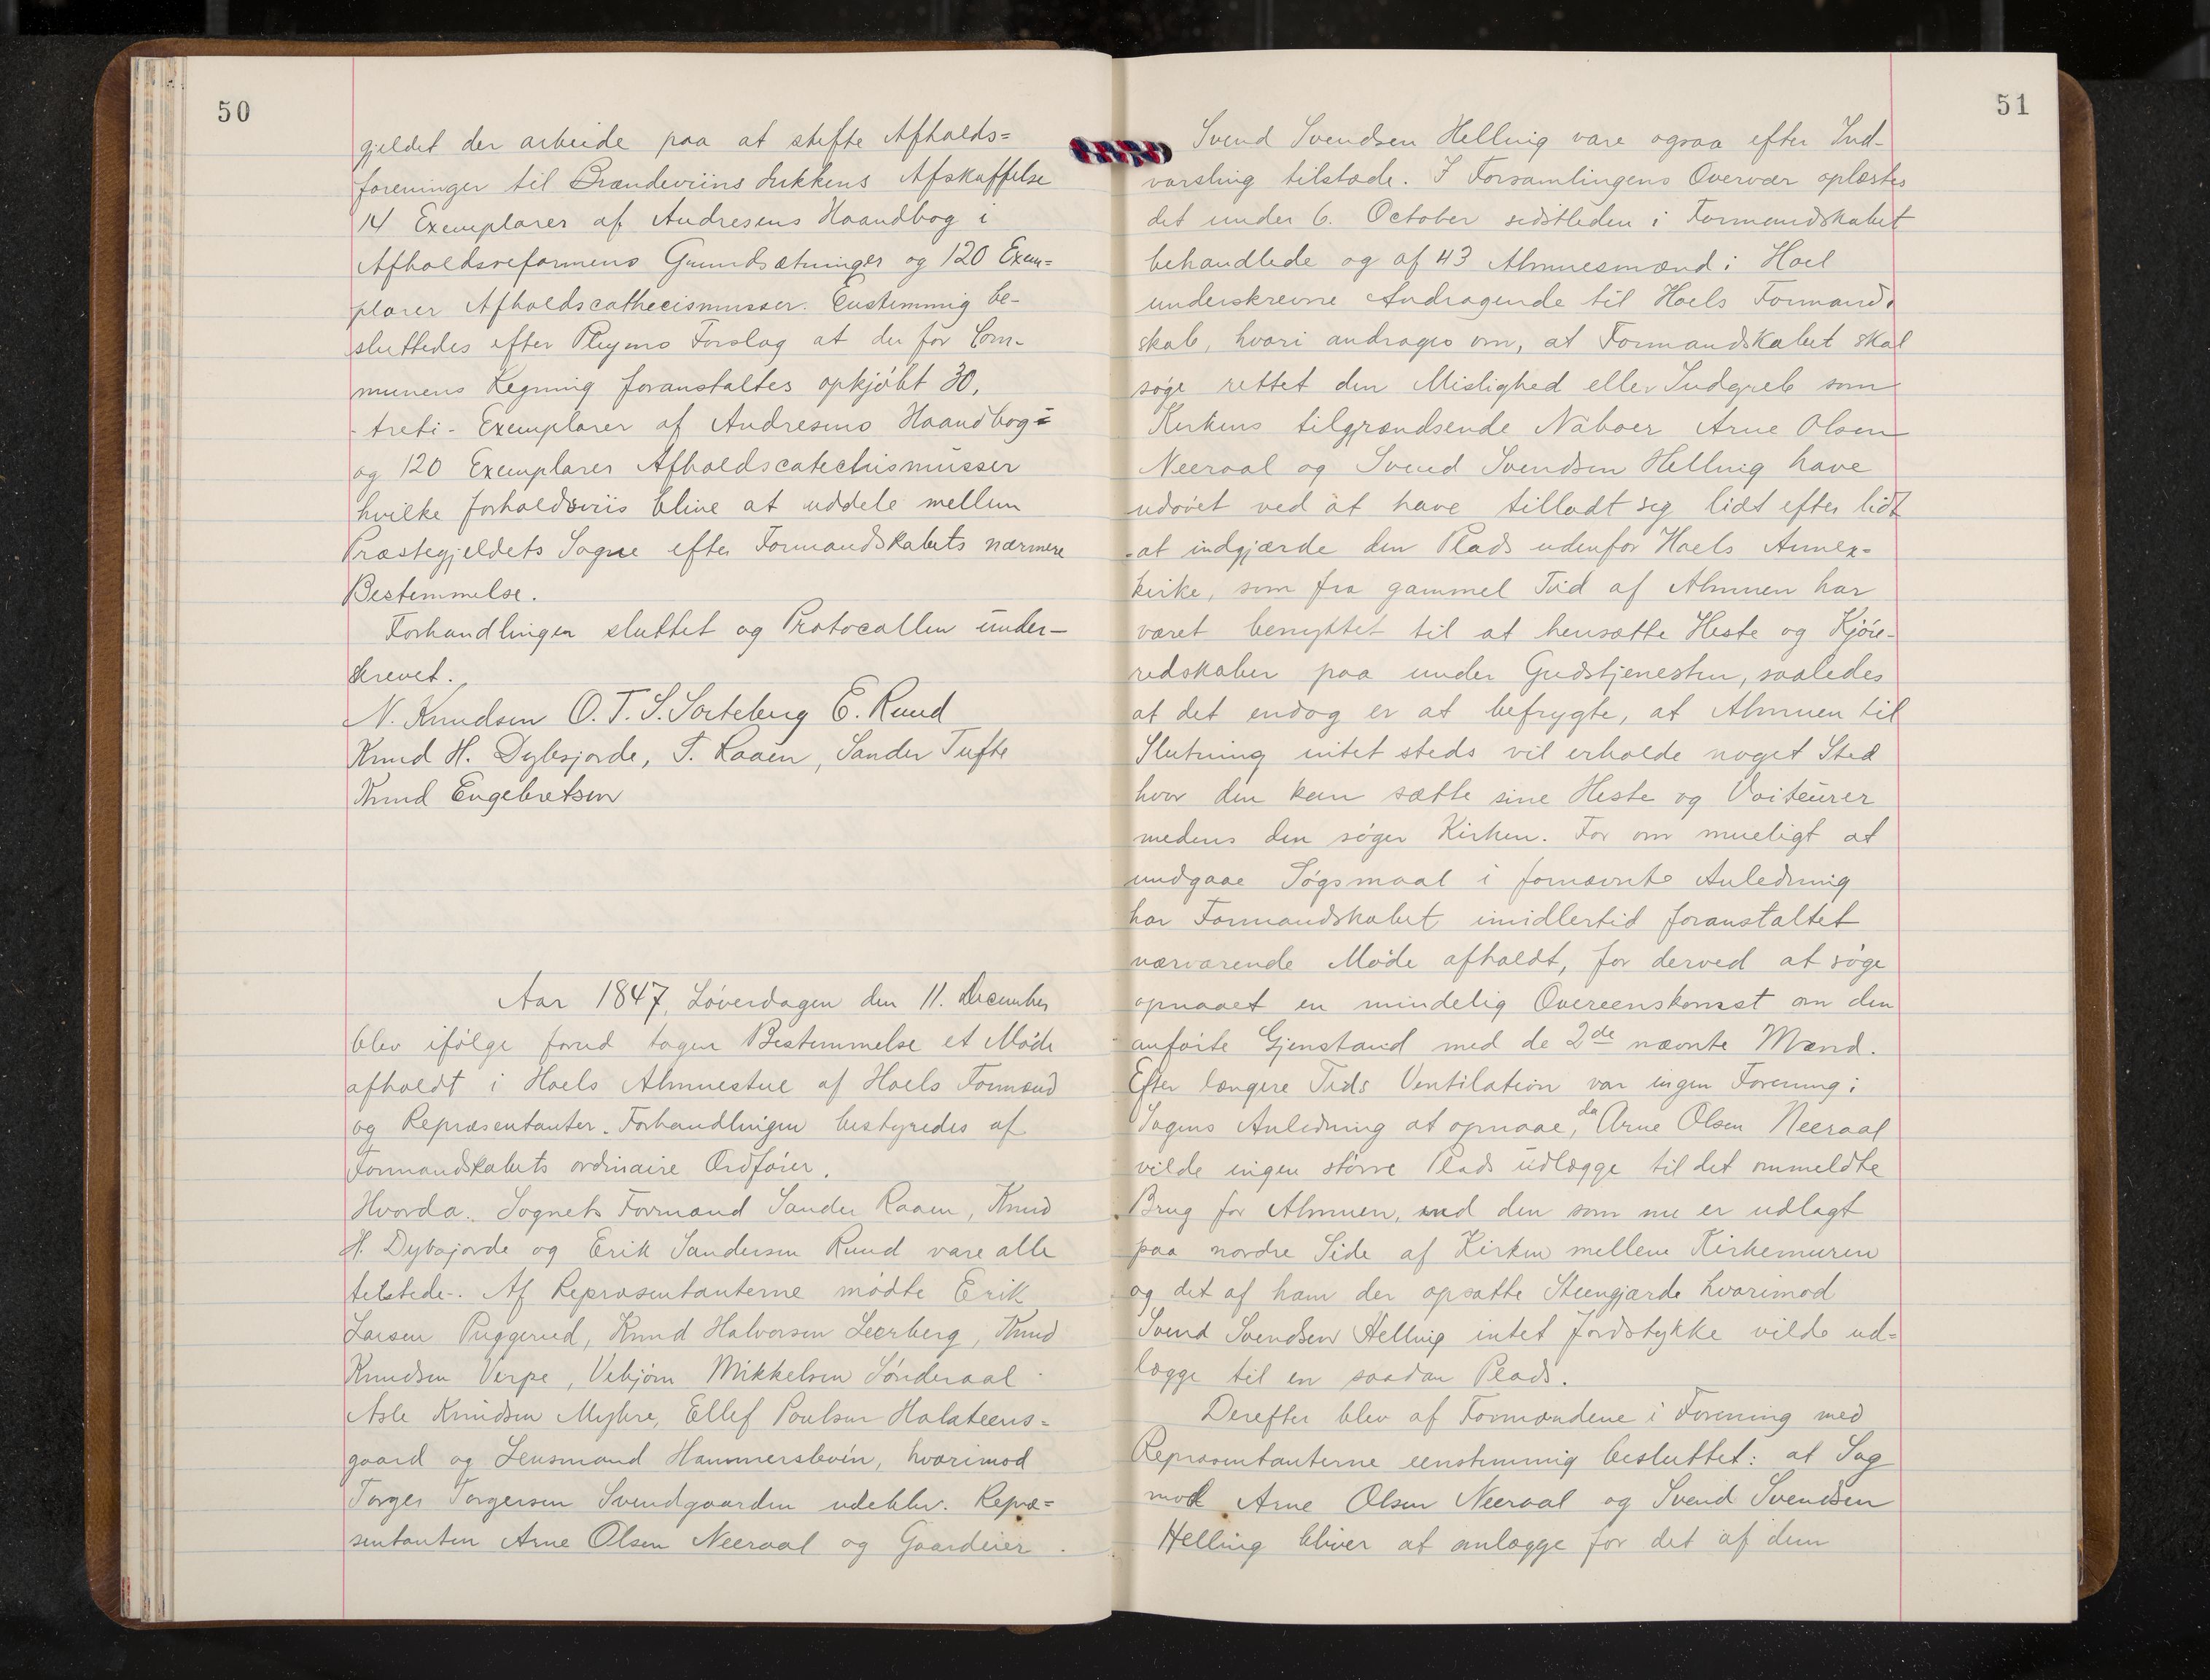 50
gjeldet der arbeide paa at stifte Afholds=
foreninger til Brændeviins Drikkens Afskaffelse
14 Exemplarer af Andresens Haandbog i
Afholdsreformens Grundsætninger og 120 Exem=
plarer Afholdscathecismusser. Eenstemmig be-
sluttedes efter Pleyms Forslag at der for Com-
munens Regning foranstaltes opkjøbt 30,
- treti - Exemplarer af Andresens Haandbog =
og 120 Exemplarer Afholdscatechismusser
hvilke forholdsviis blive at uddele mellem
Præstegjeldets Sogne efter Formandskabets nærmere
Bestemmelse.
Forhandlingen sluttet og Protocollen under-
skrevet.
N. Knudsen O. T. S. Sorteberg E. Ruud
Knud H. Dybsjorde, S. Raaen, Sander Tufte
Knud Engebretsen
Aar 1847, Løverdagen den 11. December
blev ifølge forud tagen Bestemmelse et Møde
afholdt i Hoels Almuestue af Hoels Formænd
og Repræsentanter. Forhandlingen bestyredes af
Formandskabets ordinaire Ordfører.
Hvorda. Sognets Formænd Sander Raaen, Knud
H. Dybsjorde og Erik Sandersen Ruud vare alle
telstede. Af Repræsentanterne mødte Erik
Larsen Puggerud, Knud Halvorsen Leerberg, Knud
Knudsen Verpe, Vebjørn Mikkelsen Sønderaal
Asle Knudsen Myhre, Ellef Poulsen Halsteens=
gaard og Lensmand Hammersbøen, hvorimod
Torger Torgersen Svendgaarden udeblev. Repræ=
sentanten Arne Olsen Neeraal og Gaardeier
51
Svend Svendsen Helling vare ogsaa efter Ind-
varsling tilstæde. I Forsamlingens Overvær oplæstes
det under 6. October sidstleden i Formandskabet
behandlede og af 43 Almuesmænd i Hoel
underskrevne Andragende til Hoels Formand-
skab, hvori andrages om, at Formandskabet skal
søge rettet den Mislighed eller Indgreb som
Kirkens tilgrændsende Naboer Arne Olsen
Neeraal og Svend Svendsen Helling have
udøvet ved at have tilladt sig lidt efter lidt
at indgjærde den Plads udenfor Hoels Annex=
kirke, som fra gammel Tiid af Almuen har
været benyttet til at hensætte Heste og Kjøre-
redskaber paa under Gudstjenesten, saaledes
at det endog er at befrygte, at Almuen til
Slutning intet steds vil erholde noget Sted
hvor den kan sætte sine Heste og Voiteurer
medens den søger Kirken. For om mueligt at
undgaae Søgsmaal i fornævnte Anledning
har Formandskabet imidlertid foranstaltet
nærværende Møde afholdt, for derved at søge
opnaaet en mindelig Overeenskomst om den
anførte Gjenstand med de 2de nævnte Mænd.
Efter længere Tids Ventilation var ingen Forening i
Sagens Anledning at opnaae, da Arne Olsen Neeraal
vilde ingen større Plads udlægge til det ommeldte
Brug for Almuen, end den som nu er udlagt
paa nordre Side af Kirken mellem Kirkemuren
og det af ham der opsatte Steengjærde hvorimod
Svend Svendsen Helling intet Jordstykke vilde ud=
lægge til en saadan Plads.
Derefter blev af Formændene i Forening med
Repræsentanterne eenstemmig besluttet: at Sag
mod Arne Olsen Neeraal og Svend Svendsen
Helling bliver at anlægge for det af dem